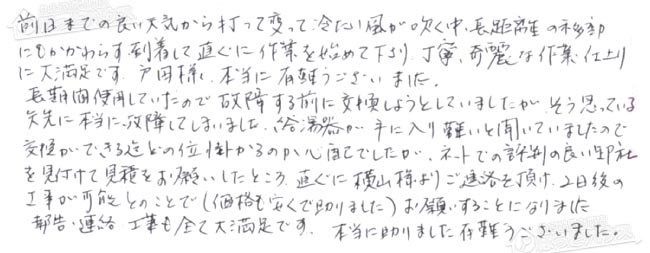 前日までの良い天気から打って変って冷たい風が吹く中、長距離の移動
にもかかわらず到着して直ぐに作業を始めて下さり、丁寧、奇麗な作業、仕上り
に大満足です。戸田様、本当に有難うございました。
長期間使用していたので故障する前に交換しようとしていましたが、そう思っている
矢先に本当に故障してしまいました、給湯器が手に入り難いと聞いていましたので
交換ができる迄どの位掛かるのか心配でしたが、ネットでの評判の良い御社
を見付けて見積をお願いしたところ、直ぐに横山様よりご連絡を頂け、2日後の
工事が可能とのことで(価格も安くて助りました)お願いすることになりました
報告・連絡、工事も全て大満足です。本当に助りました有難うございました。